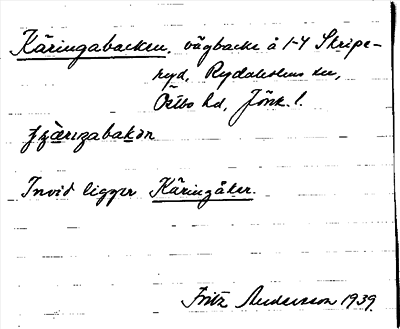 Käringabacken, vägbacke å 1-4 Skripe-
ryd, Rydaholms sn,
Östbo hd, Jönk. l.
Invid ligger Käringåker.
Fritz Andersson 1939.